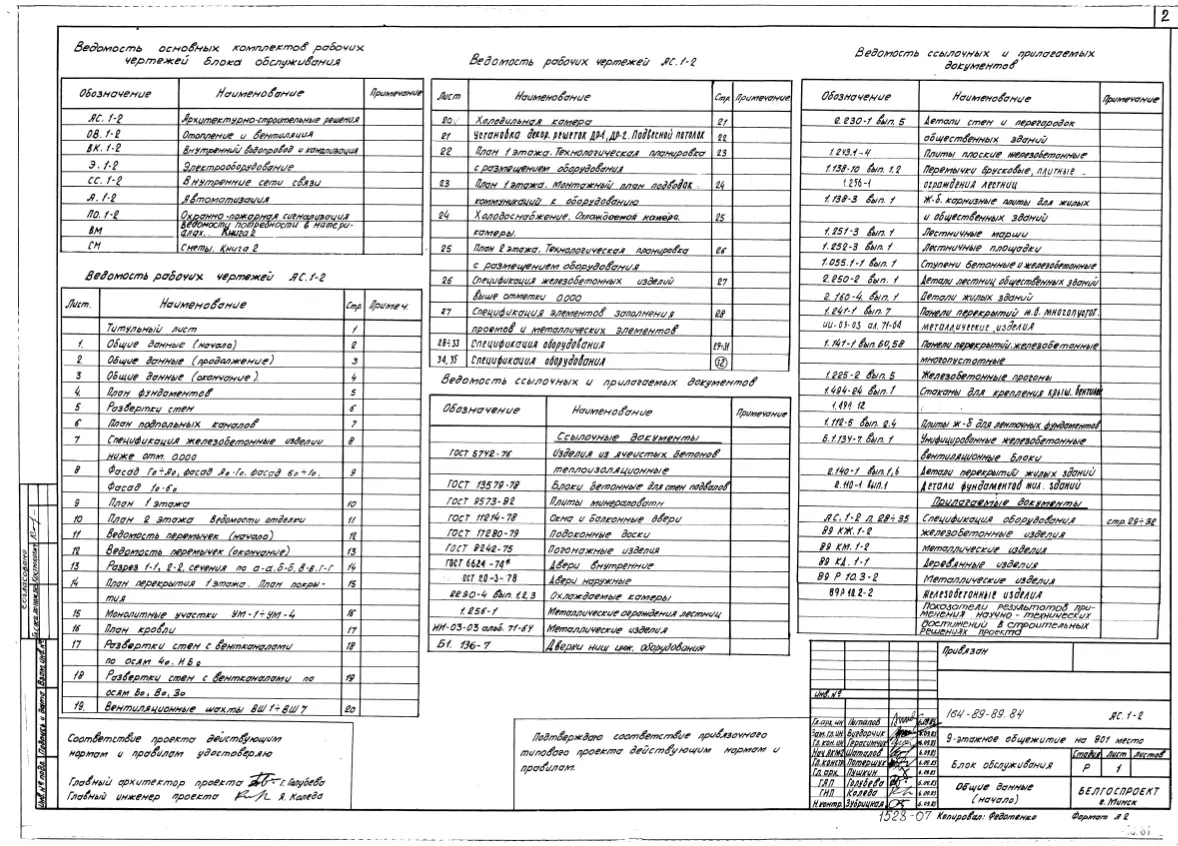 2
Ведомость основных комплектов рабочих
чертежей блока обслуживания
Обозначение Наименование Примечание
ЯС.1-2 Архитектурно-строительные решения
ОВ.1-2 Отопление и вентиляция
ВК.1-2 Внутренний водопровод и канализация
Э.1-2 Электрооборудование
СС.1-2 Внутренние сети связи
Я.1-2 Автоматизация
ПО.1-2 Охранно-пожарная сигнализация
ВМ Ведомости потребности в матери-
алах. Книга 2
СМ Сметы. Книга 2
Ведомость рабочих чертежей ЯС.1-2
Лист. Наименование Стр Примеч.
Титульный лист 1
1. Общие данные (начало) 2
2 Общие данные (продолжение) 3
3 Общие данные (окончание). 4
4. План фундаментов 5
5 Развертки стен 6
6 План подпольных каналов 7
7 Спецификация железобетонные изделии 8
ниже отм. 0.000
8 Фасад Го÷Яо, фасад Яо-Го. фасад 6о÷1о. 9
Фасад 1о-6о
9 План 1 этажа 10
10 План 2 этажа Ведомости отделки 11
11 Ведомость перемычек (начало) 12
12 Ведомость перемычек (окончание) 13
13 Разрез 1-1, 2-2, сечения по а-а, б-б, в-в, г-г 14
14 План перекрытия 1 этажа. План покры- 15
тия
15 Монолитные участки УМ-1÷УМ-4 16
16 План кровли 17
17 Развертки стен с вентканалами 18
по осям 4о. и Бо
18 Развертки стен с вентканалами по 19
осям Бо, Во, 3о
19. Вентиляционные шахты ВШ1÷ВШ7 20
Соответствие проекта действующим
нормам и правилам удостоверяю
Главный архитектор проекта Г. Голубева
Главный инженер проекта Я. Коледа
Ведомость рабочих чертежей ЯС.1-2
Лист Наименование Стр. Примечание
20 Холодильная камера 21
21 Установка декор. решеток ДР-1, ДР-2. Подвесной потолок 22
22 План 1 этажа. Технологическая планировка 23
с размещением оборудования
23 План 1 этажа. Монтажный план подводок 24
коммуникаций к оборудованию
24 Холодоснабжение. Охлаждаемая камера. 25
камеры.
25 План 2 этажа. Технологическая планировка 26
с размещением оборудования
26 Спецификация железобетонных изделий 27
выше отметки 0.000
27 Спецификация элементов заполнения 28
проемов и металлических элементов
28÷33 Спецификация оборудования 29-31
34, 35 Спецификация оборудования 32
Ведомость ссылочных и прилагаемых документов
Обозначение Наименование Примечание
Ссылочные документы
ГОСТ 5742-76 Изделия из ячеистых бетонов
теплоизоляционные
ГОСТ 13579-78 Блоки бетонные для стен подвалов
ГОСТ 9573-82 Плиты минераловатн
ГОСТ 11214-78 Окна и балконные двери
ГОСТ 17280-79 Подоконные доски
ГОСТ 8242-75 Погонажные изделия
ГОСТ 6624-74* Двери внутренние
ОСТ 20-3-78 Двери наружные
2290-4 вып. 1,2,3 Охлаждаемые камеры
1.256-1 Металлические ограждения лестниц
ИИ-03-03 альб. 71-64 Металлические изделия
Б1. 136-7 Дверки ниш инж. оборудования
Подтверждаю соответствие привязочного
типового проекта действующим нормам и
правилам.
Ведомость ссылочных и прилагаемых
документов
Обозначение Наименование Примечание
2.230-1 вып. 5 Детали стен и перегородок
общественных зданий
1.243.1-4 Плиты плоские железобетонные
1.138-10 вып. 1,2 Перемычки брусковые, плитные
1.256-1 ограждения лестниц
1.138-3 вып. 1 Ж-б. карнизные плиты для жилых
и общественных зданий
1.251-3 вып. 1 Лестничные марши
1.252-3 вып. 1 Лестничные площадки
1.055.1-1 вып. 1 Ступени бетонные и железобетонные
2.250-2 вып. 1 Детали лестниц общественных зданий
2.160-4. вып. 1 Детали жилых зданий
1.241-1 вып. 7 Панели перекрытий ж.б. многопустот.
ИИ-03-03 ал. 71-64 металлические изделия
1.141-1 вып. 60,58 Панели перекрытий железобетонные
многопустотные
1.225-2 вып. 5 Железобетонные прогоны
1.494-24 вып. 1 Стаканы для крепления крыш. вентиляц
1.112-5 вып. 2.4 Плиты ж-б для ленточных фундаментов
Б.1.134-7. вып. 1 Унифицированные железобетонные
вентиляционные блоки
2.140-1 вып. 1,6 Детали перекрытий жилых зданий
2.110-1 вып.1 Детали фундаментов жил. зданий
Прилагаемые документы
ЯС.1-2 л. 28÷35 Спецификация оборудования стр. 29÷32
89 КЖ.1-2 железобетонные изделия
89 КМ.1-2 металлические изделия
89 КД.1-1 Деревянные изделия
89 Р 10.3-2 Металлические изделия
89Р 12.2-2 Железобетонные изделия
Показатели результатов при-
менения научно-технических
достижений в строительных
решениях проекта
Привязан
инв. №
164-89-89.84 ЯС.1-2
9-этажное общежитие на 801 место
Блок обслуживания
Стадия Лист Листов
Р 1
Общие данные
(начало)
БЕЛГОСПРОЕКТ
г. Минск
Гл. арх. ин Пыталов 6.09.83
Зам. гл. ин Бурдорчик 6.09.83
Гл. кон. ин Герасимчик
Нач АКМ2 Шаталов 6.09.83
Гл. констр Петерщук 6.09.83
Гл. арх. Пушкин 6.09.83
ГАП Голубева 6.09.83
ГИП Коледа 6.09.83
Н. контр. Зубрицкая 6.09.83
1528-07 Копировал: Федотенко Формат А2
Согласовано
Инв. № подл. Подпись и дата Взам. инв. №